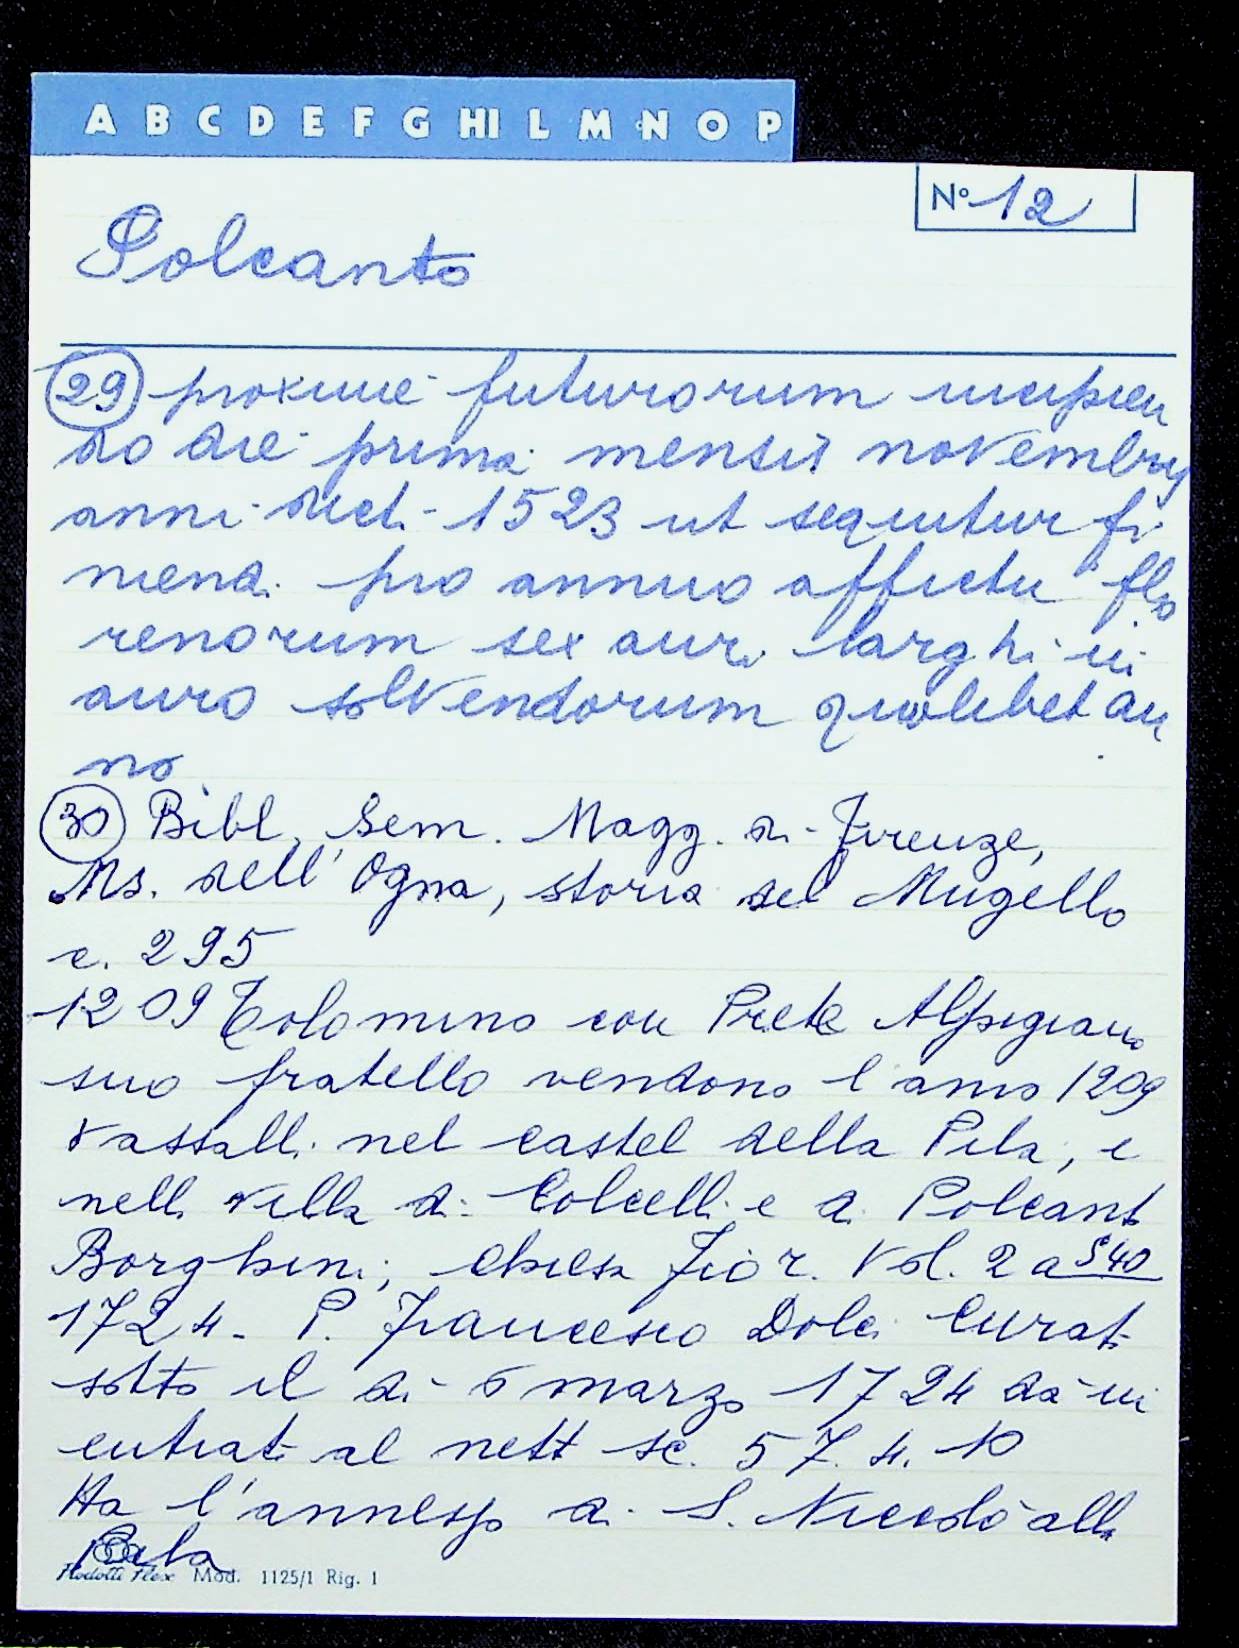 A B C D E F G HI L M N O P
Nº 12
Polcanto
29 proxime futurorum incipien
do die prima mensis novembry
anni dict. 1523 ut sequitur fi
niend. pro annuo affictu flo
renorum sex auri larghi in
auro solvendorum quolibet an
no
30 Bibl. Sem. Magg. di Firenze,
Ms. dell'Ogna, storia del Mugello
c. 295
1209 Tolomino con Prete Alpigiano
suo fratello vendono l'anno 1209
vassalli nel castel della Pila, e
nella villa di Colcelli e a Polcanto
Borghini, chiesa Fior. Vol. 2 a 540
1724 - P. Francesco Dolci Curato
sotto il dì 6 marzo 1724 dà in
entrata al netto sc. 57. 4. 10
Ha l'annesso di S. Niccolò alla
Pila
Flodotti Flex Mod. 1125/1 Rig. 1